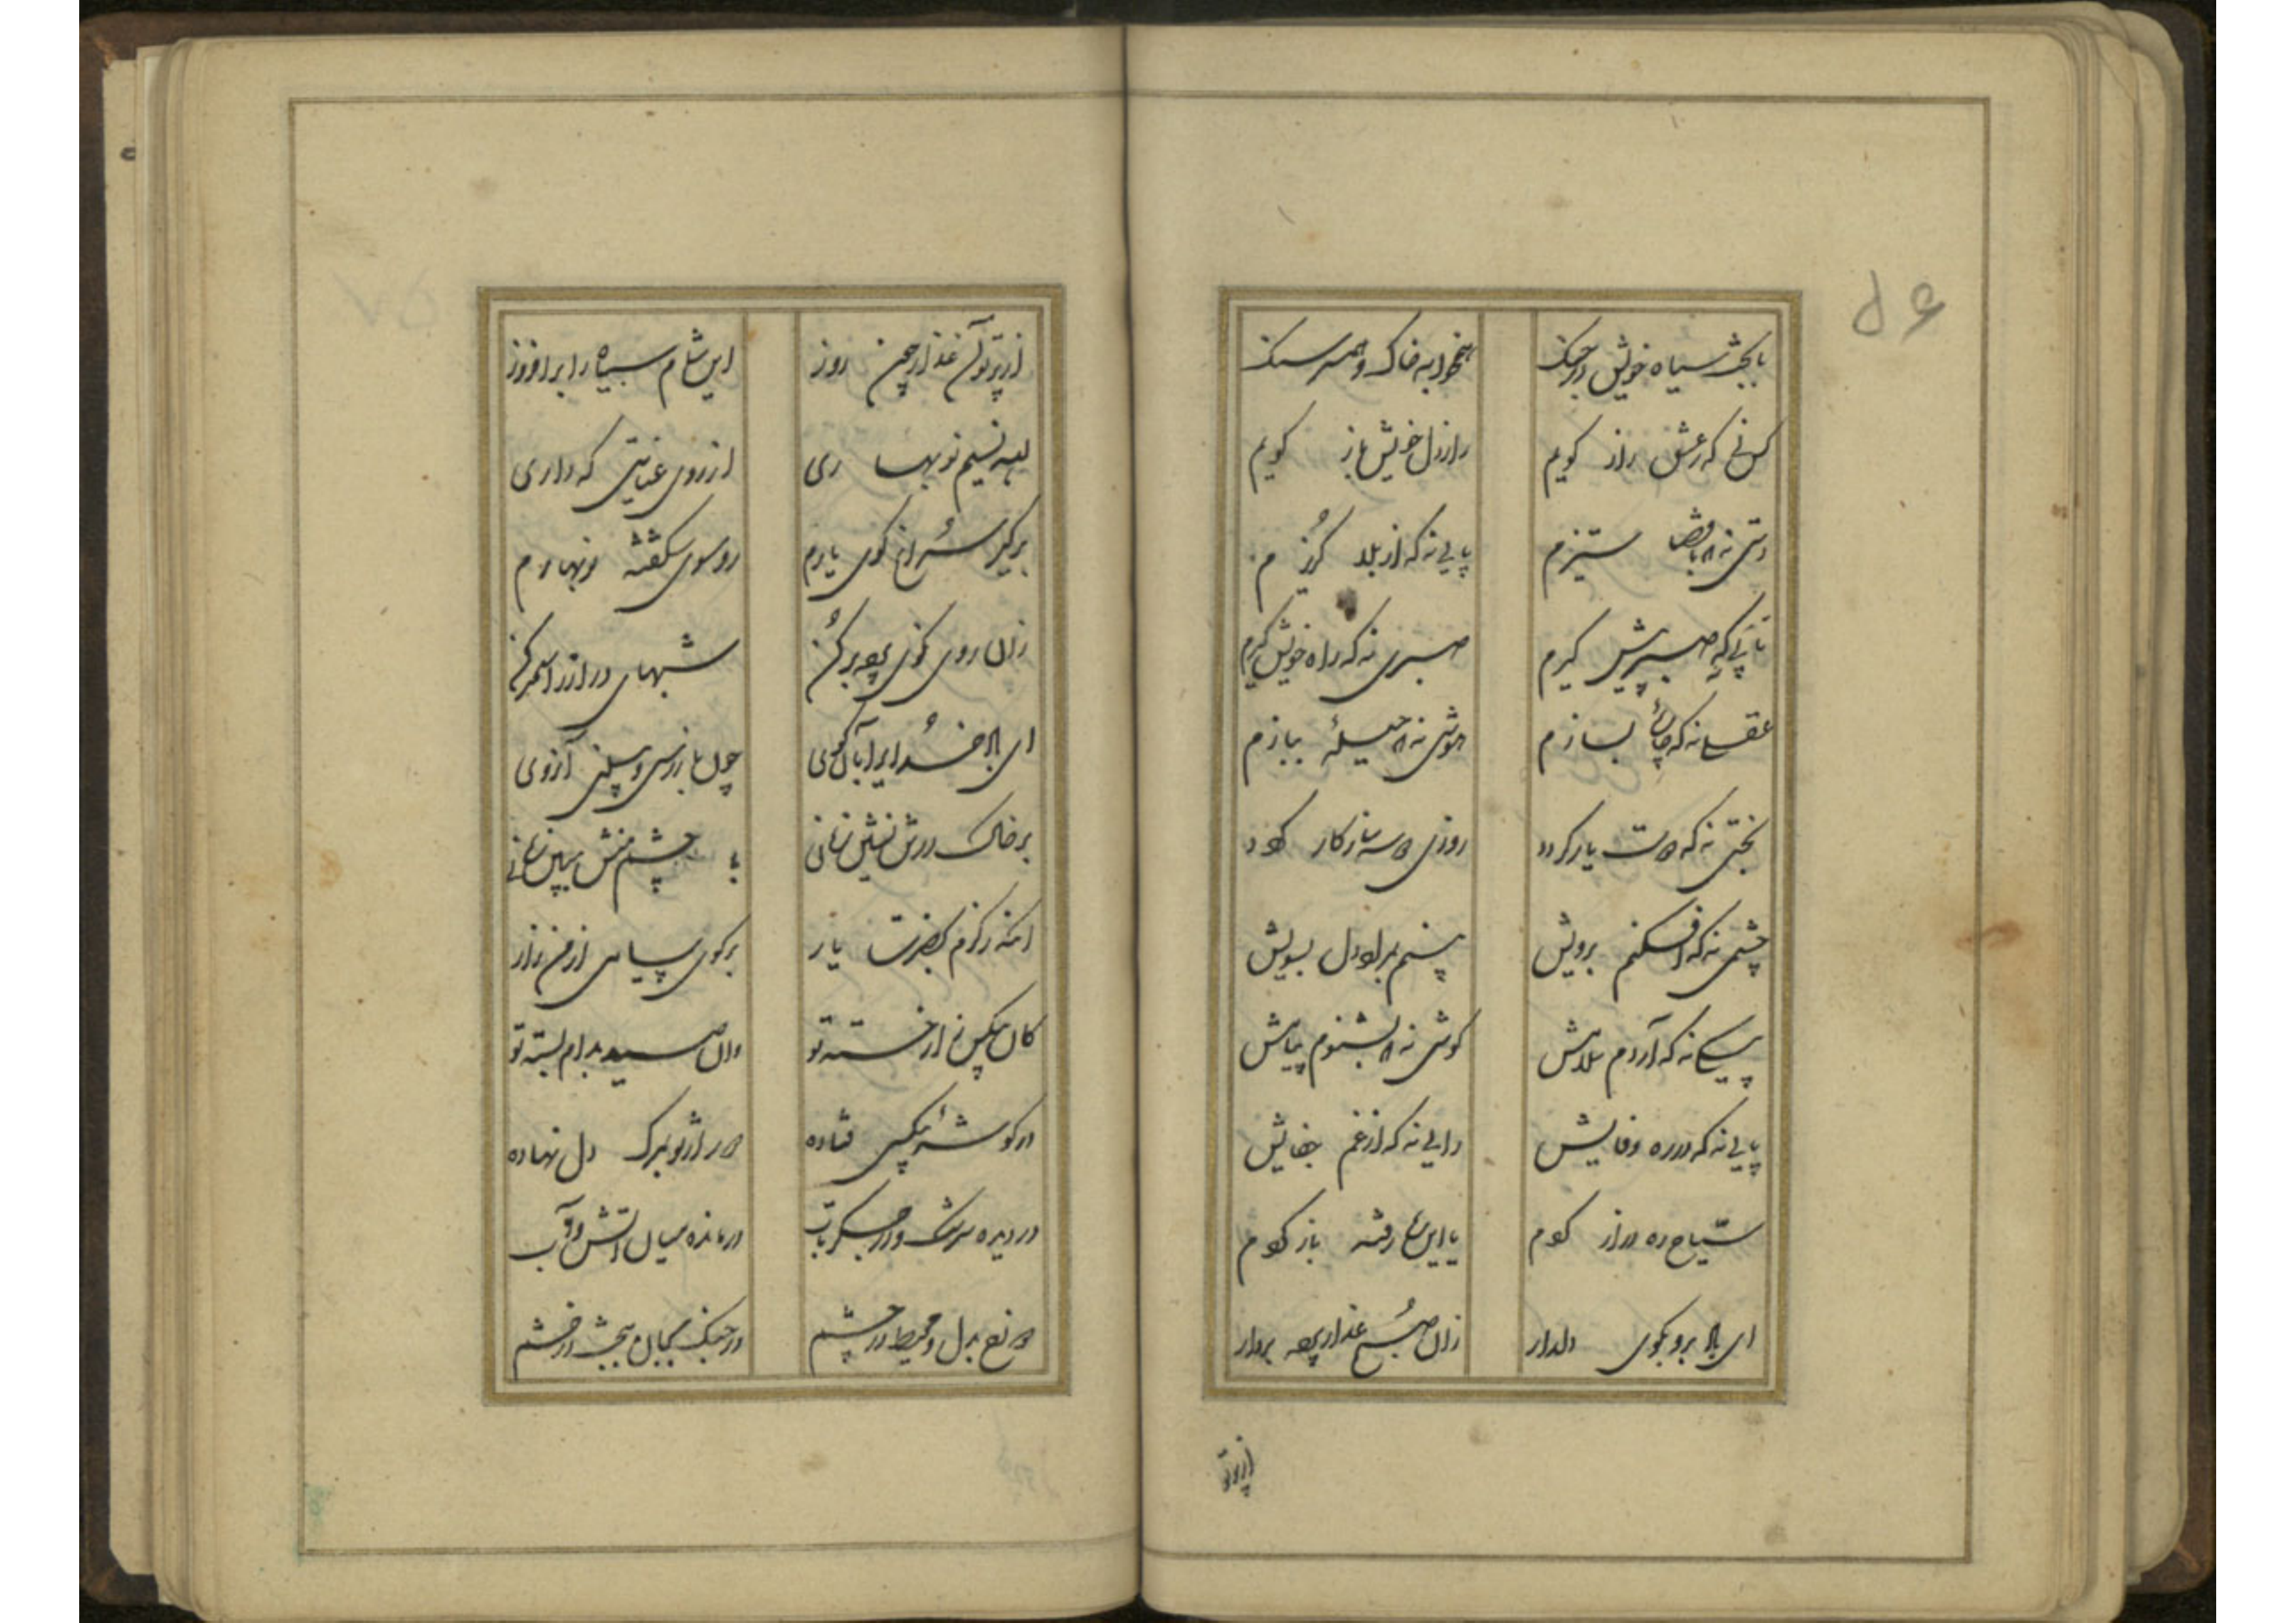 ۵۶
با بخت سیاه خویش در جنگ
همخوابه خاک و همسر سنگ
کس نی که ز عشق راز گویم
راز دل خویش باز گویم
دستی نه که با قضا ستیزم
پایی نه که از بلا گریزم
تا پی که صبر پیش گیرم
صبری نه که راه خویش گیرم
عقلی نه که چاره بسازم
هوشی نه که حیله ببازم
بختی نه که دوست یار گردد
روزی که سازگار گردد
چشمی نه که افکنم برویش
بینم بمراد دل بسویش
پیکی نه که آردم سلامش
گوشی نه که بشنوم پیامش
پایی نه که در ره وفایش
رایی نه که از غم جفایش
سیاح ره دراز گردم
یا این ره رفته باز گردم
ای باد برو بکوی دلدار
زان صبح عذار پرده بردار
از پرتو
از پرتو آن عذار چون روز
این شام سیاه را برافروز
ای نسیم نوبهاری
از روی عنایتی که داری
برگیر سر از کوی یارم
رو سوی شگفته نوبهارم
زان روی نکوی پرده برکن
شبهای دراز را سحر کن
ای باد خدایرا بآن کوی
چون باز رسی و بینی آن روی
بر خاک درش نشین زمانی
با چشم منش ببین نهانی
آنگه ز کرم بحضرت یار
برگوی پیامی از من زار
کان بیکس زار خسته تو
وان صید بدام بسته تو
در گوشه بیکسی فتاده
دور از تو بمرگ دل نهاده
در دیده سرشک و در جگر تاب
درمانده میان آتش و آب
دوزخ بدل و محیط در چشم
در جنگ بجان و بخت در خشم